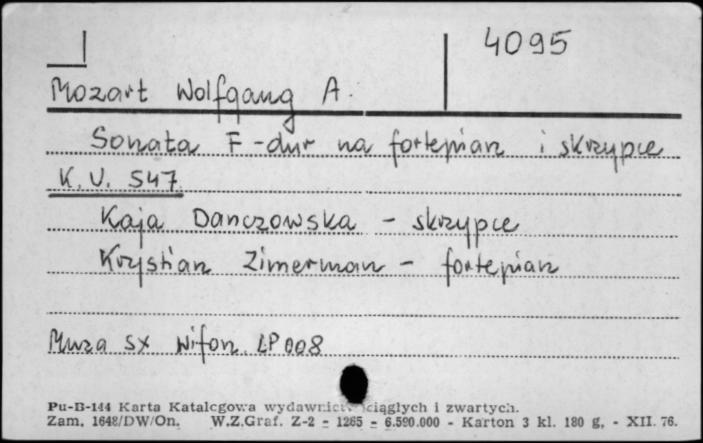 4095
Mozart Wolfgang A.
Sonata F-dur na fortepian i skrzypce
K.V. 547
Kaja Danczowska - skrzypce
Krystian Zimerman - fortepian
Muza SX Wifon LP 008
Pu-B-144 Karta Katalogowa wydawnictw ciągłych i zwartych.
Zam. 1648/DW/On. W.Z.Graf. Z-2 - 1265 - 6.590.000 - Karton 3 kl. 180 g, - XII. 76.